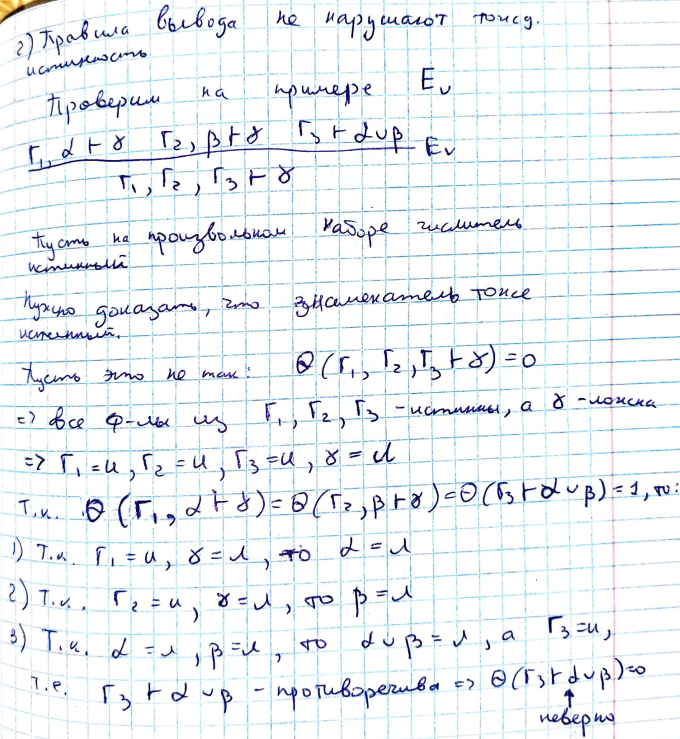 2) Правила вывода не нарушают тожд.
истинность
Проверим на примере E∨
Γ₁, α ⊢ γ Γ₂, β ⊢ γ Γ₃ ⊢ α∪β E∨
Γ₁, Γ₂, Γ₃ ⊢ γ
Пусть на произвольном наборе числитель
истинный
Нужно доказать, что знаменатель тоже
истинный.
Пусть это не так: Θ(Γ₁, Γ₂, Γ₃ ⊢ γ) = 0
=> все ф-лы из Γ₁, Γ₂, Γ₃ - истинны, а γ - ложна
=> Γ₁ = и, Γ₂ = и, Γ₃ = и, γ = л
Т.к. Θ(Γ₁, α ⊢ γ) = Θ(Γ₂, β ⊢ γ) = Θ(Γ₃ ⊢ α∪β) = 1, то:
1) Т.к. Γ₁ = и, γ = л, то α = л
2) Т.к. Γ₂ = и, γ = л, то β = л
3) Т.к. α = л, β = л, то α∪β = л, а Γ₃ = и,
т.е. Γ₃ ⊢ α∪β - противоречива => Θ(Γ₃ ⊢ α∪β) = 0
↑
неверно